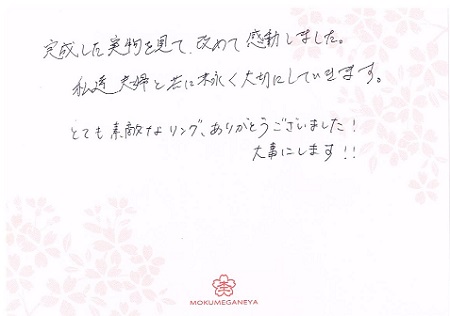 完成した実物を見て、改めて感動しました。
私達夫婦と共に末永く大切にしていきます。
とても素敵なリング、ありがとうございました！
大事にします！！
MOKUMEGANEYA